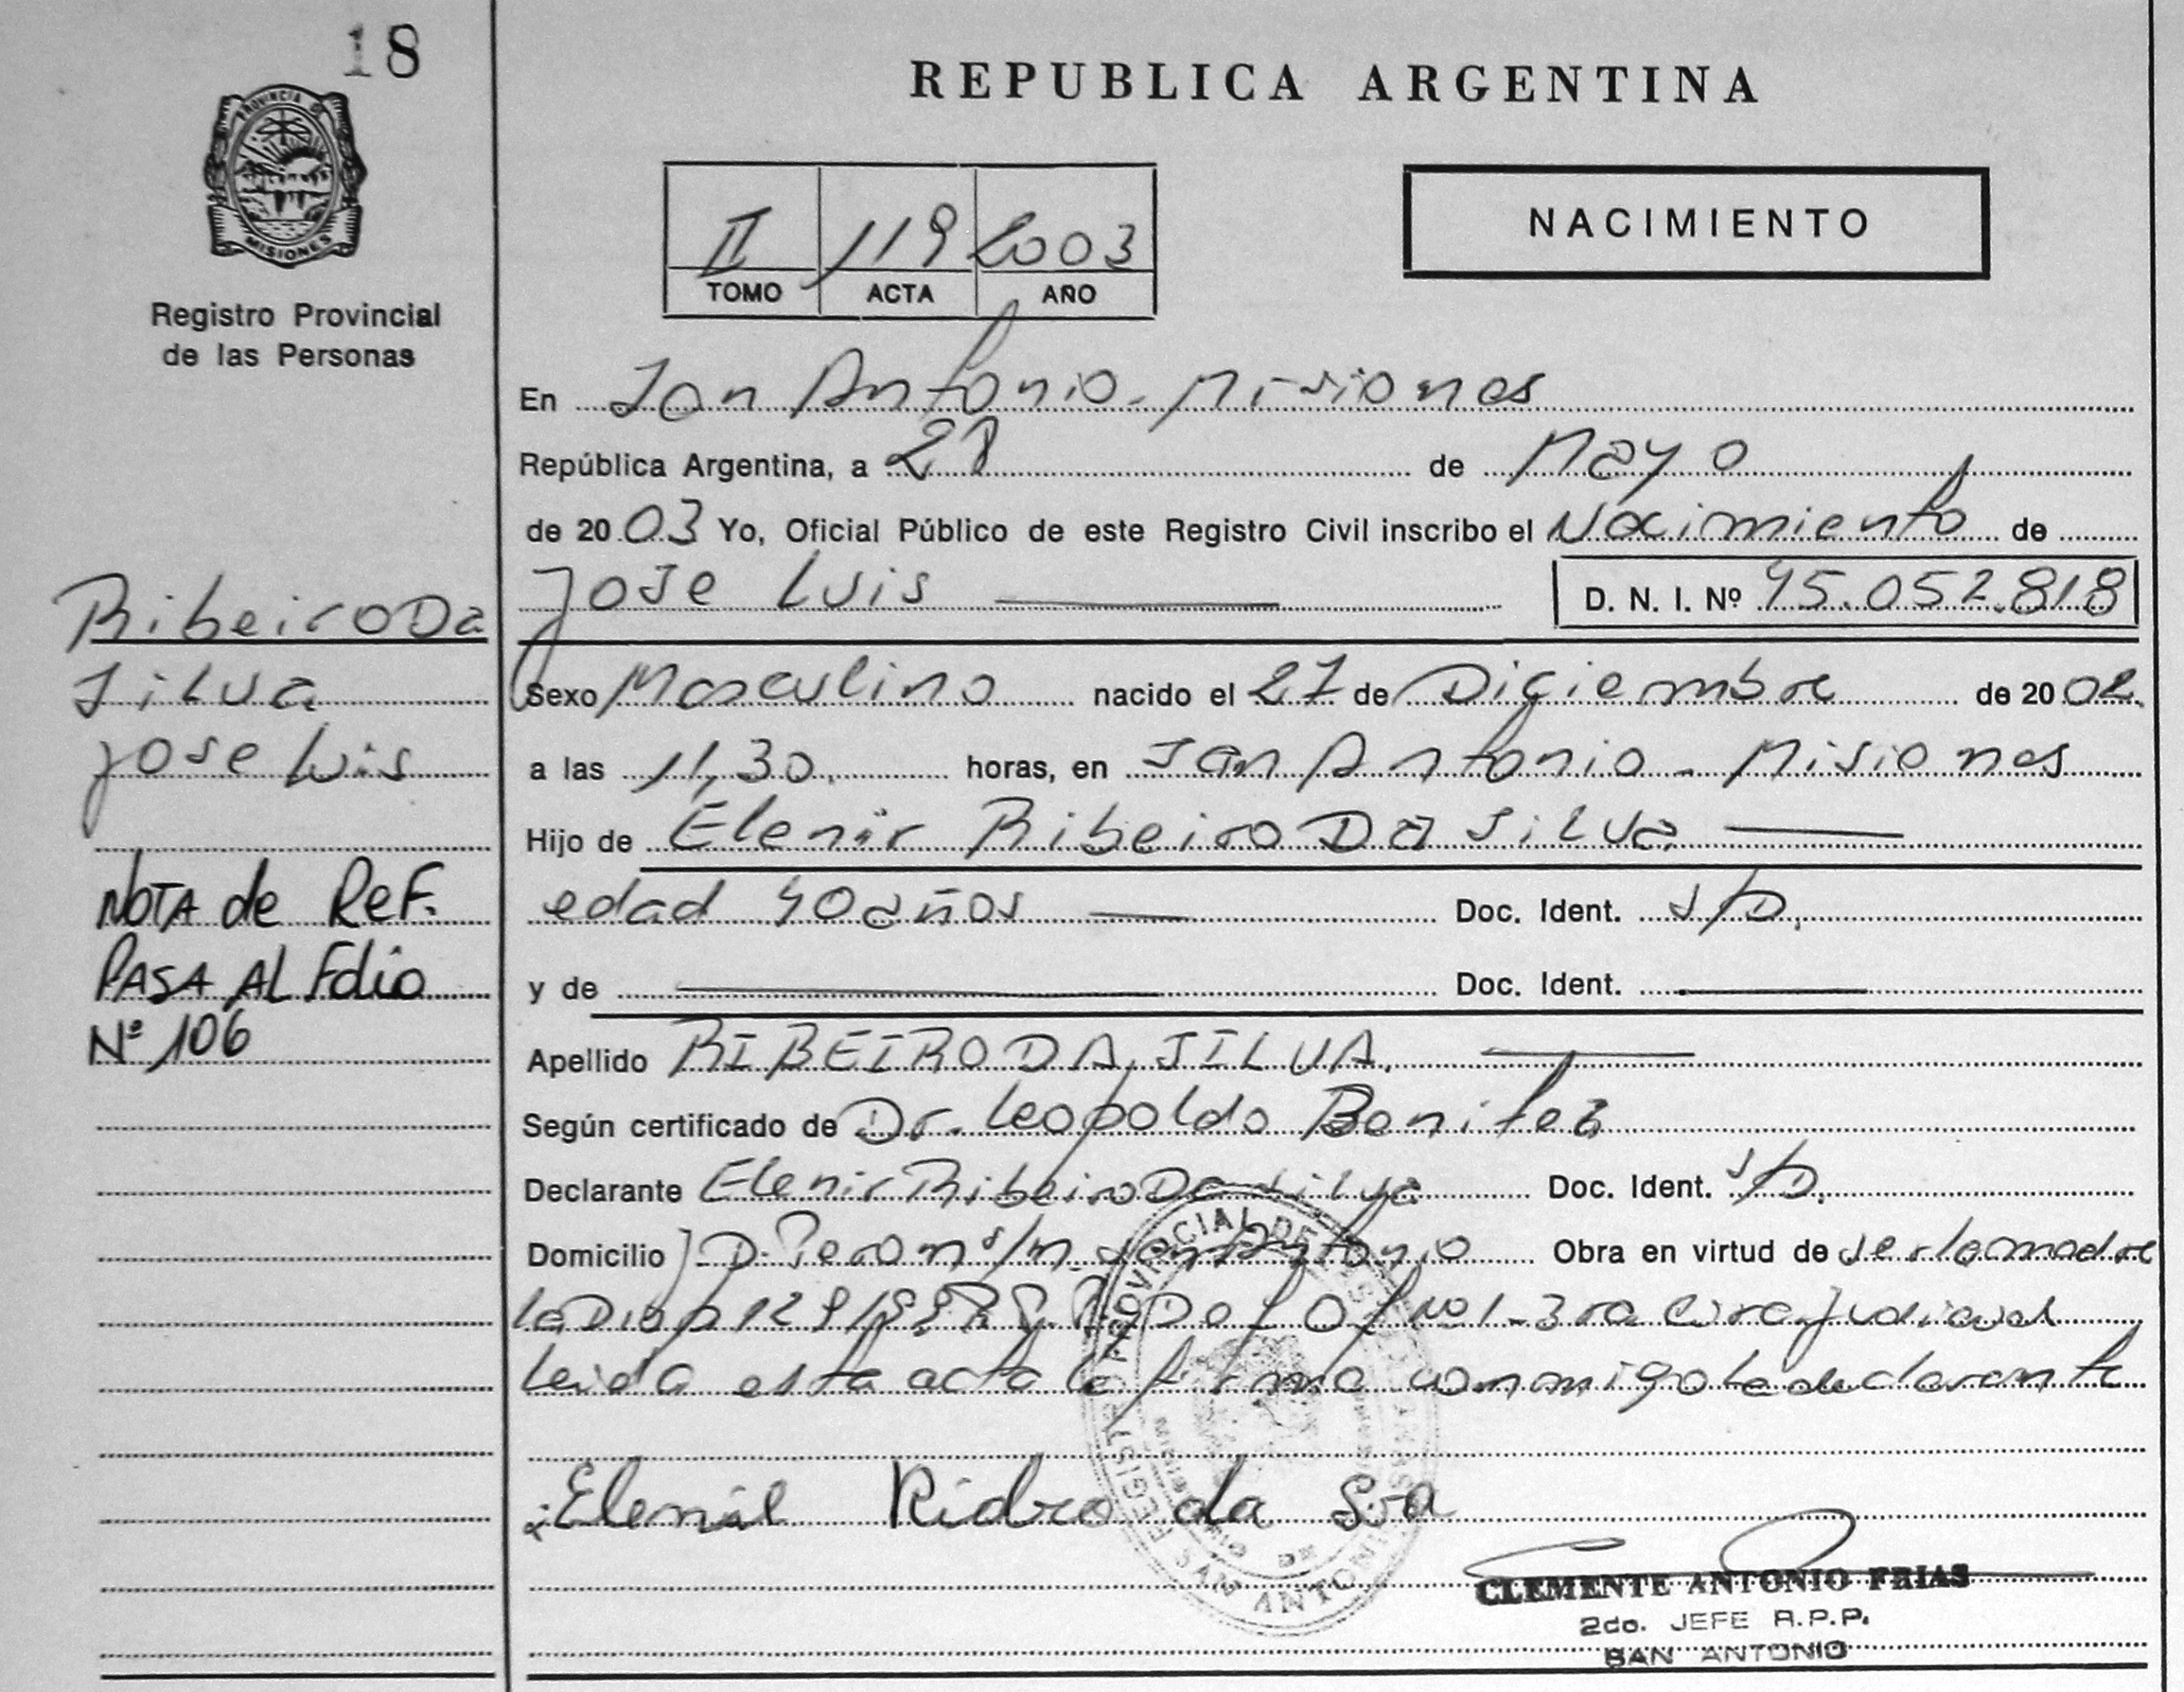 18
PROVINCIA DE
MISIONES
Registro Provincial
de las Personas
REPUBLICA ARGENTINA
II 119 2003
TOMO ACTA AÑO
NACIMIENTO
En San Antonio - Misiones
República Argentina, a 28 de Mayo
de 20 03 Yo, Oficial Público de este Registro Civil inscribo el Nacimiento de
Jose Luis D. N. I. Nº 45.052.818
Ribeiro Da
Silva
Jose Luis
Sexo Masculino nacido el 27 de Diciembre de 20 02.
a las 11,30. horas, en San Antonio - Misiones
Hijo de Elenir Ribeiro Da Silva
edad 40 años Doc. Ident. S/D.
y de Doc. Ident.
NOTA de Ref.
PASA AL Folio
Nº 106
Apellido RIBEIRO DA SILVA.
Según certificado de Dr. Leopoldo Benitez
Declarante Elenir Ribeiro Da Silva Doc. Ident. S/D.
Domicilio J.D. Peron s/n San Antonio Obra en virtud de ser la madre
la Disp 129/99 Def Of Nº 1 - 3ra Circ. Judicial
Leida esta acta la firma conmigo la declarante
Elenil Ridro da Sva
SAN ANTONIO
CLEMENTE ANTONIO FRIAS
2do. JEFE R.P.P.
SAN ANTONIO